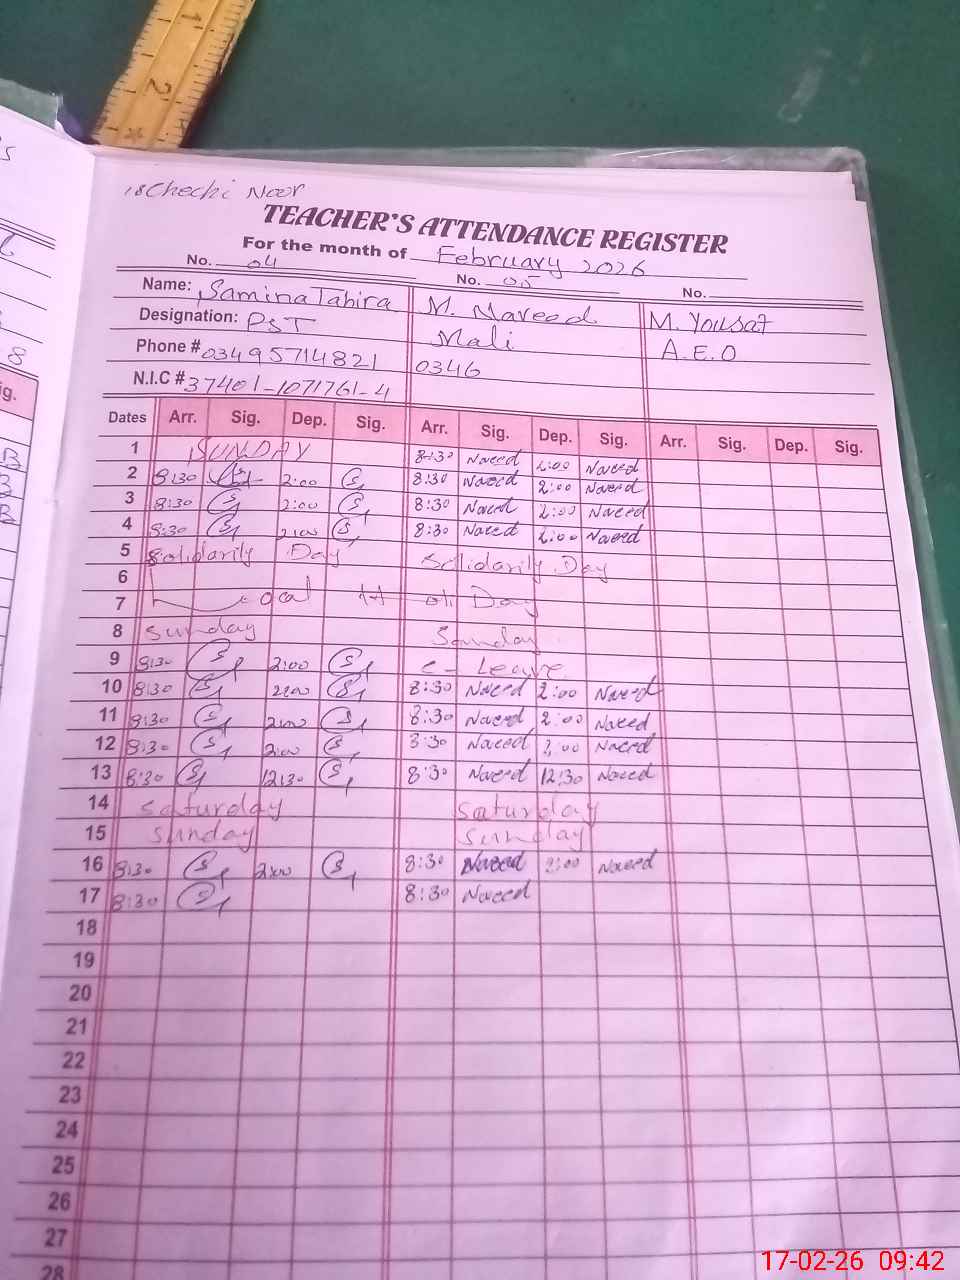 Chechi Noor
TEACHER'S ATTENDANCE REGISTER
For the month of February 2026
No. 04 No. 05 No.
Name: Samina Tahira M. Naveed M. Yousaf
Designation: PST Mali A.E.O
Phone # 03495714821 0346
N.I.C # 37401-1071761-4
Dates Arr. Sig. Dep. Sig. Arr. Sig. Dep. Sig. Arr. Sig. Dep. Sig.
1 SUNDAY 8:30 Naveed 2:00 Naveed
2 8:30 2:00 8:30 Naveed 2:00 Naveed
3 8:30 2:00 8:30 Naved 2:00 Naveed
4 8:30 2:00 8:30 Naveed 2:00 Naveed
5 Solidarity Day Solidarity Day
6
7 Local Day
8 Sunday Sunday
9 8:30 2:00 C- Leave
10 8:30 2:00 8:30 Naveed 2:00 Naveed
11 8:30 2:00 8:30 Naveed 2:00 Naveed
12 8:30 2:00 8:30 Naveed 2:00 Naveed
13 8:30 12:30 8:30 Naveed 12:30 Naveed
14 Saturday Saturday
15 Sunday Sunday
16 8:30 2:00 8:30 Naveed 2:00 Naveed
17 8:30 8:30 Naveed
18
19
20
21
22
23
24
25
26
27
28
17-02-26 09:42